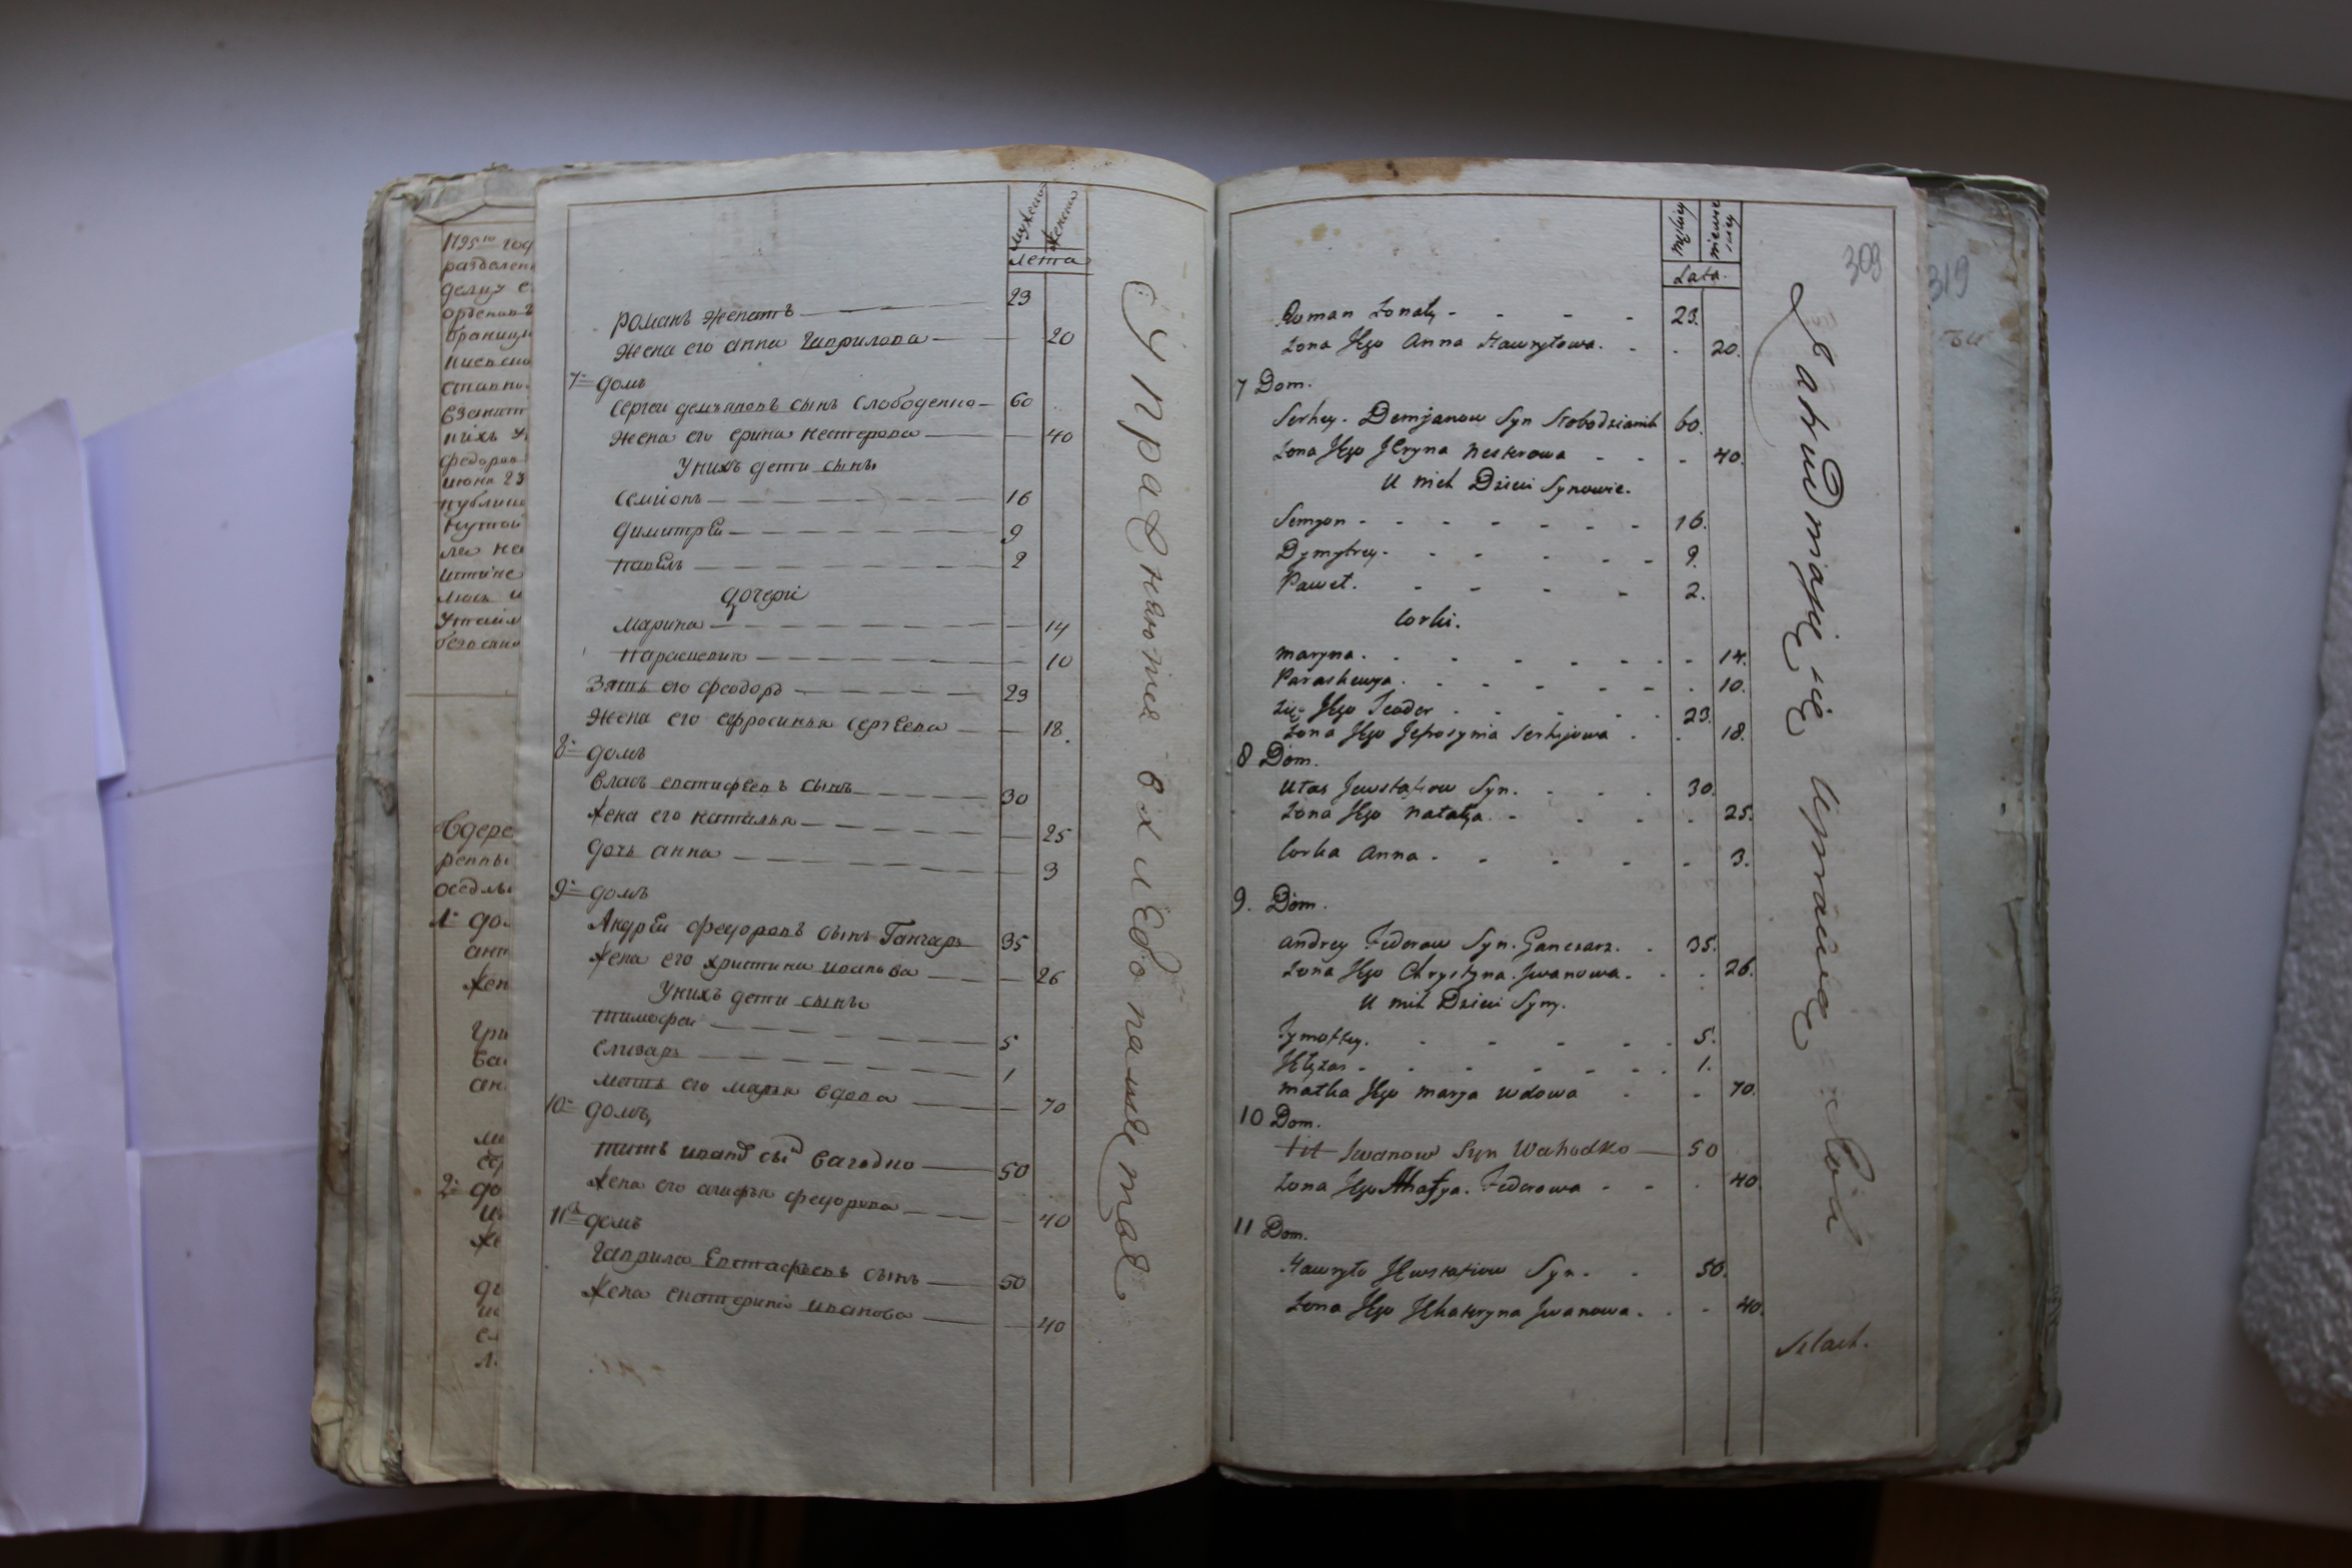 1795го год
разделен
делих с
орденовъ
границ
киевск
ставпо
взанят
нихъ у
федоров
июня 23
публико
Кутои
ли не
истине
люсь и
утаил
безъ
Вдере
репны
оседлы
1й до
ант
жен
гри
ва
ан
2й до
мужеск
женска
лета
романъ женатъ 23
жена его анна гаврилова 20
7й домъ
Сергеи демьяновъ сынъ Слободенко 60
жена его ерина нестерова 40
Унихъ дети сыны
Семионъ 16
димитрѣи 9
павелъ 2
дочери
марина 14
параскевия 10
Зять его феодоръ 23
жена его ефросинья сергѣева 18.
8й домъ
власъ евстифѣевъ сынъ 30
жена его наталья 25
дочь анна 3
9й домъ
Андрѣи федоровъ сынъ Ганчаръ 35
жена его христина иванова 26
Унихъ дети сыны
тимофеи 5
елизаръ 1
мать его марья вдова 70
10й домъ
титъ иванов сын Вагодко 50
жена его агафья федорова 40
11й домъ
гаврило Евстафьевъ сынъ 50
жена екатерина иванова 40
Суправняются вхлебопашество
męscy
niewiesciey
Lata.
309
319
Roman Żonaty - - - - 23.
Żona Jego Anna Hawryłowa. - - 20.
7 Dom.
Serhey. Demjanow Syn Słobodzianik 60.
Żona Jego Jeryna Nesterowa - - - 40.
U nich Dzieci Synowie.
Semyon - - - - - - - 16.
Dymytrey. - - - - - - 9.
Paweł. - - - - 2.
Corki.
Maryna. - - - - - - - 14.
Paraskewya. - - - - - - 10.
Zięć Jego Teodor - - - - - 23.
Żona Jego Jefrosynia Serhijowa - - 18.
8 Dom.
Ułas Jewstafiow Syn. - - - 30.
Żona Jego Natalya. - - - - 25.
Corka Anna - - - - - 3.
9. Dom.
Andrey Fedorow Syn. Ganczarz. - 35.
Żona Jego Chrystyna. Jwanowa. - - 26.
U nich Dzieci Syny.
Tymofey. - - - - - 5.
Jełyzar - - - - - - - 1.
Matka Jego Marya Wdowa - - 70.
10 Dom.
Tit Jwanow Syn Wahodko 50
Żona Jego Ahafya. Fedorowa - - - 40.
11 Dom.
Hawryło Jewstafiow Syn. - 50.
Żona Jego Jekateryna Jwanowa. - - 40.
Zatrudniaią się Uprawą Roli
Szlach.